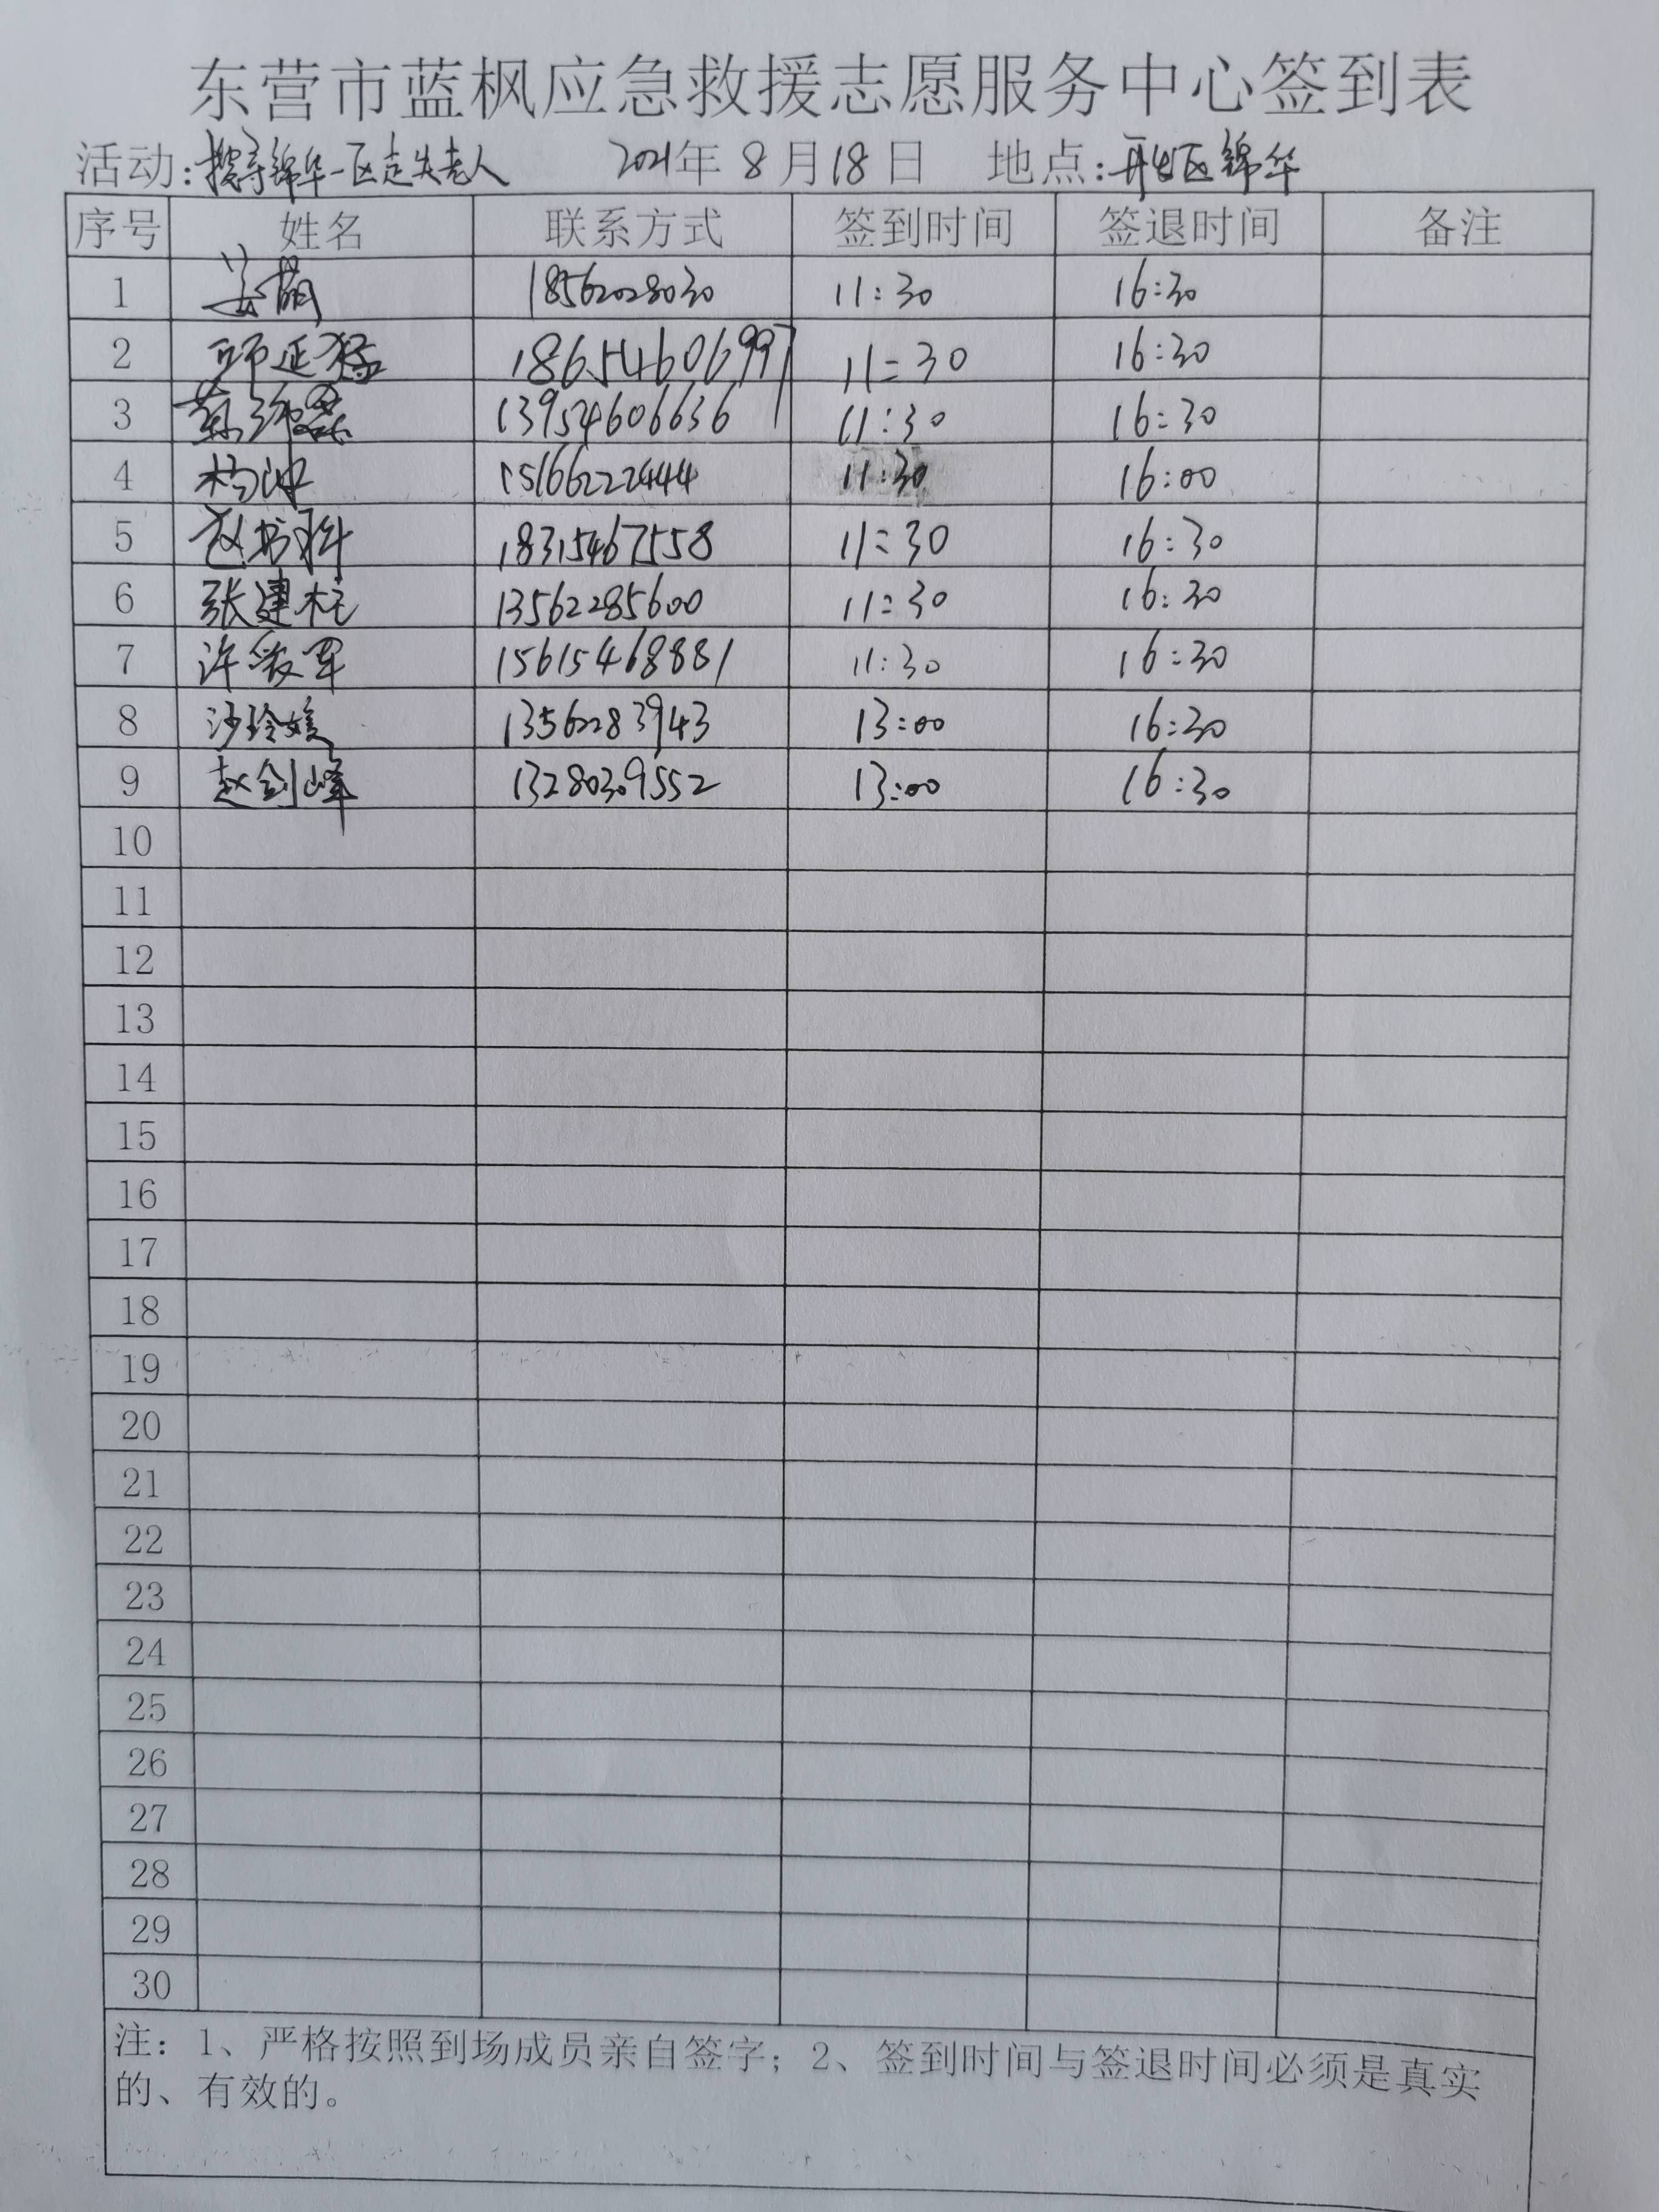 东营市蓝枫应急救援志愿服务中心签到表
活动:搜寻锦华一区走失老人 2021年8月18日 地点:开发区锦华
序号 姓名 联系方式 签到时间 签退时间 备注
1 18562028030 11:30 16:30
2 师延猛 18654606997 11:30 16:30
3 13954606636 11:30 16:30
4 杨冲 15166222444 11:30 16:00
5 18315467558 11:30 16:30
6 张建柱 13562285600 11:30 16:30
7 许爱军 15615468881 11:30 16:30
8 沙玲媛 13562283943 13:00 16:30
9 赵剑峰 13280309552 13:00 16:30
10
11
12
13
14
15
16
17
18
19
20
21
22
23
24
25
26
27
28
29
30
注：1、严格按照到场成员亲自签字；2、签到时间与签退时间必须是真实
的、有效的。